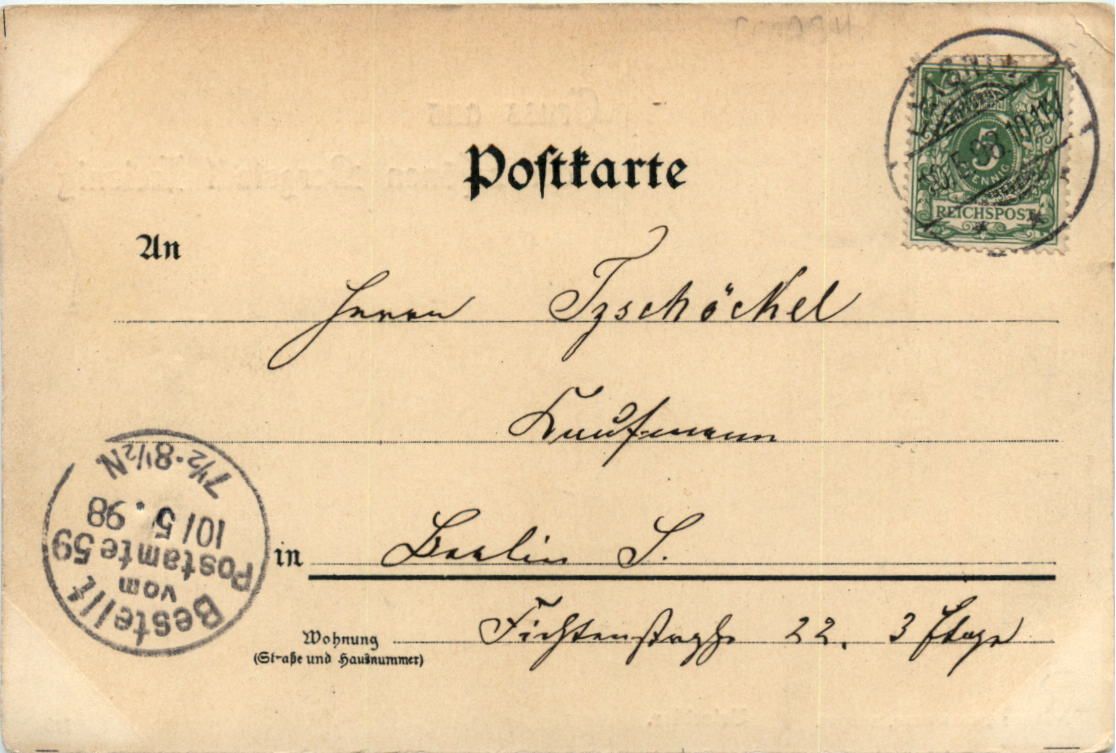 Postkarte
5
PFENNIG
REICHSPOST
10.5.98.
An
Herrn Tzschöckel
Kaufmann
in Berlin S.
Wohnung
(Straße und Hausnummer)
Fichtenstraße 22. 3 Etage
Bestellt
vom
Postamte 59
10/5.98
7½-8½N